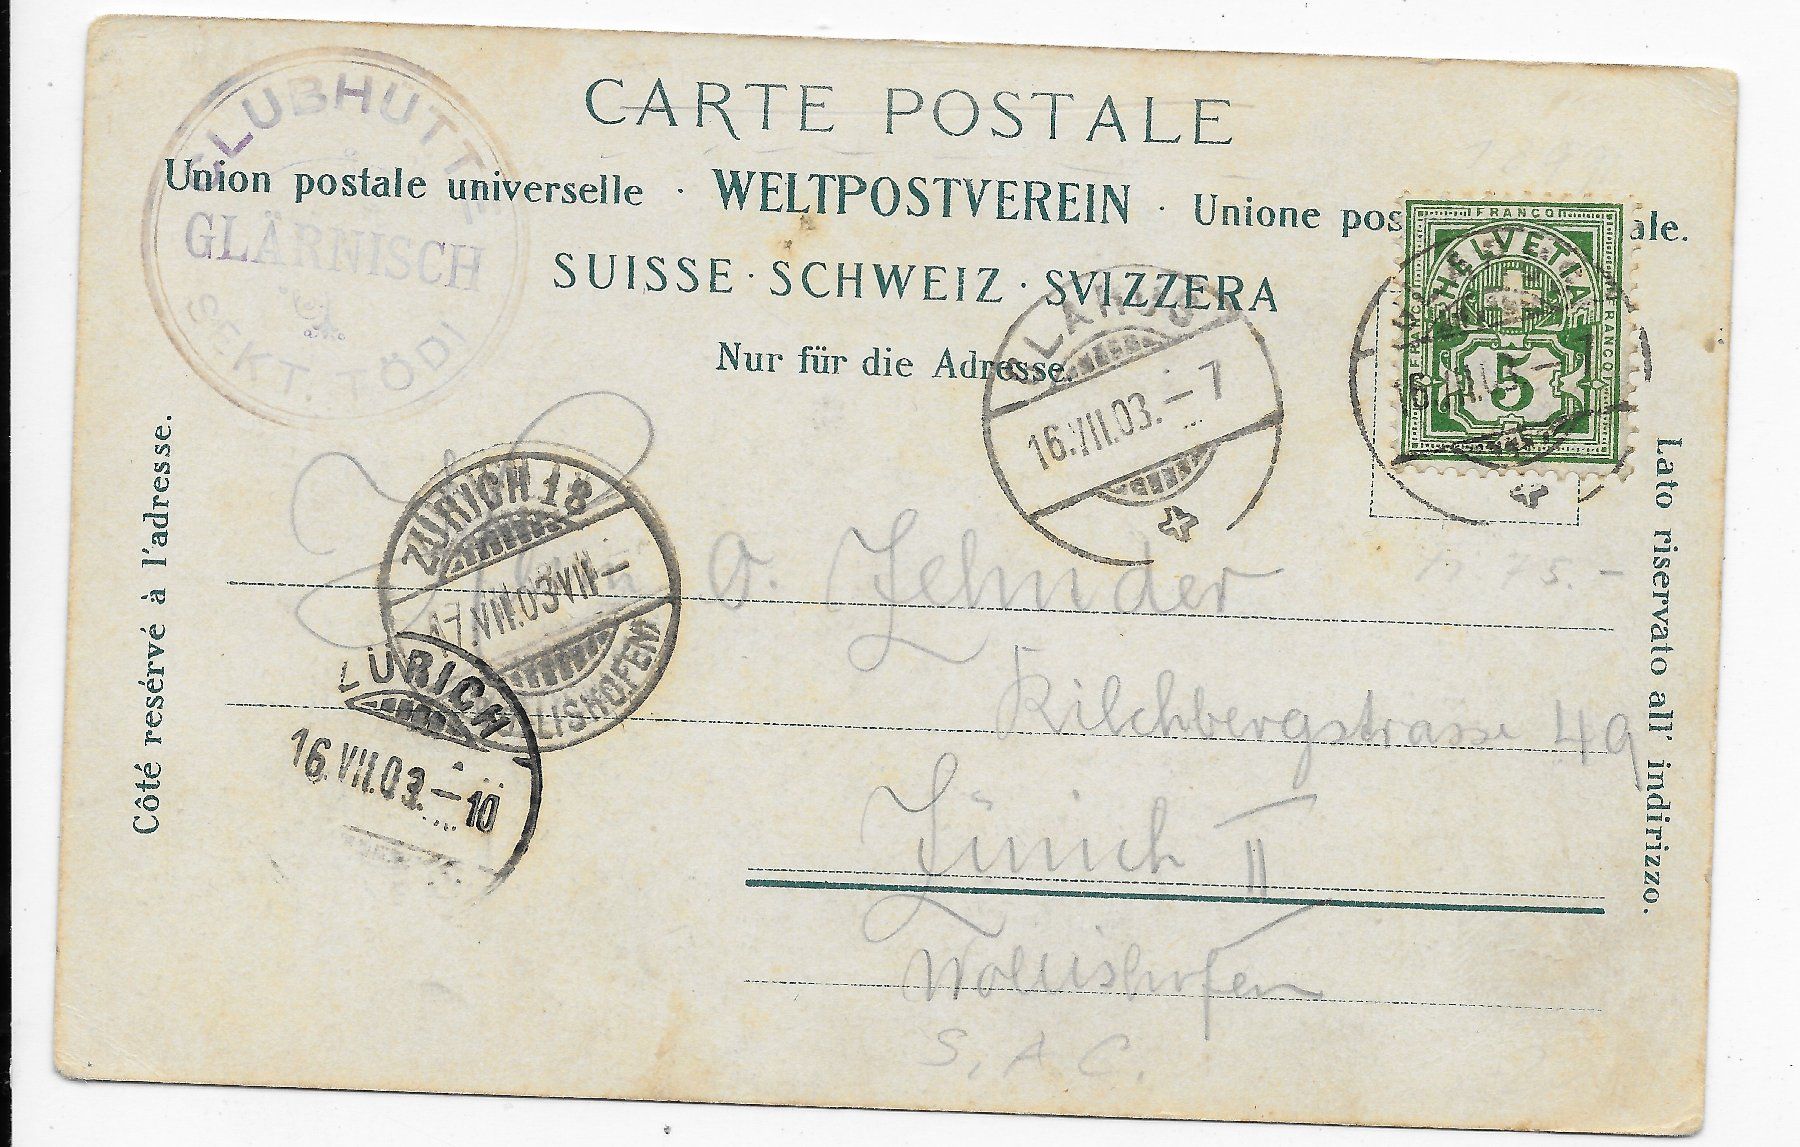 CARTE POSTALE
Union postale universelle · WELTPOSTVEREIN · Unione pos ale.
SUISSE · SCHWEIZ · SVIZZERA
Nur für die Adresse.
CLUBHÜTTE
GLÄRNISCH
SEKT. TÖDI
FRANCO
HELVETIA
FRANCO
5
GLARUS
16.VII.03.–7
16.VII.03.–7
ZÜRICH 18
17.VII.03.VII–
LISHOFEN
ZÜRICH
16.VII.03.–10
Côté resérvé à l'adresse.
Lato riservato all' indirizzo.
O. Zehnder
Kilchbergstrasse 49
Zürich II
Wollishofen
S. A. C.
75.–